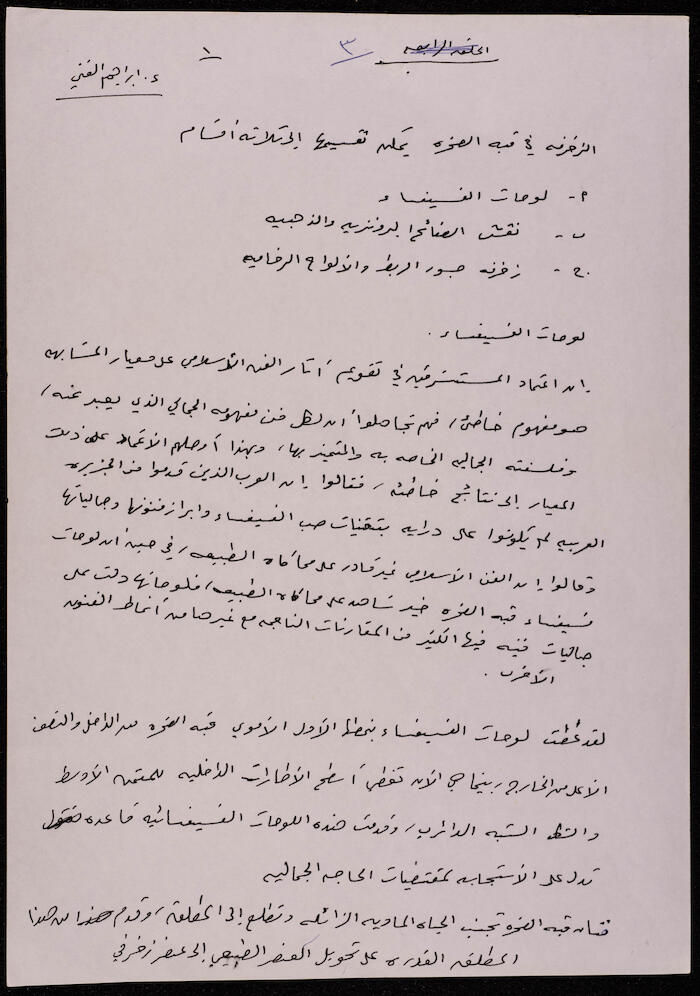 الحلقه الرابعه ٣ ١
د. ابراهيم الفني
الزخرفه في قبه الصخره يمكن تقسيمها إلى ثلاثه أقسام
٢- لوحات الفسيفساء
ب- نقش الصفائح البرونزيه والذهبيه
ج- زخرفه جسور الربط والألواح الرخاميه
لوحات الفسيفساء.
إن اعتماد المستشرقين في تقويم آثار الفن الأسلامي على معيار المشابهه
هو مفهوم خاطئ، فهم تجاهلوا أن لكل فن مفهومه الجمالي الذي يعبر عنه،
وفلسفته الجماليه الخاصه به والمتميز بها، وبهذا أوصلهم الأعتماد على ذلك
المعيار إلى نتائج خاطئه، فقالوا إن العرب الذين قدموا من الجزيره
العربيه لم يكونوا على درايه بتقنيات صب الفسيفساء وابراز فنونها وجمالياتها
وقالوا إن الفن الأسلامي غير قادر على محاكاه الطبيعه، في حين أن لوحات
فسيفساء قبه الصخره خير شاهد على محاكاه الطبيعه، فلوحاتها دلت على
جماليات فنيه فيها الكثير من المقارنات الناجحه مع غيرها من أنماط الفنون
الأخرى.
لقد غطت لوحات الفسيفساء بنمطها الأول الأموي قبه الصخره من الداخل والنصف
الأعلى من الخارج، بينما هي الآن تغطي أسطح الأطارات الداخليه للمثمن الأوسط
والشكل الشبه الدائري، وقدمت هذه اللوحات الفسيفسائيه قاعده
تدل على الأستجابه لمقتضيات الحاجه الجماليه
فنان قبه الصخره تجنب الحياه الماديه الزائله وتطلع إلى المطلقه، وقدم من هذا
المطلق القدره على تحويل العنصر الطبيعي إلى عنصر زخرفي